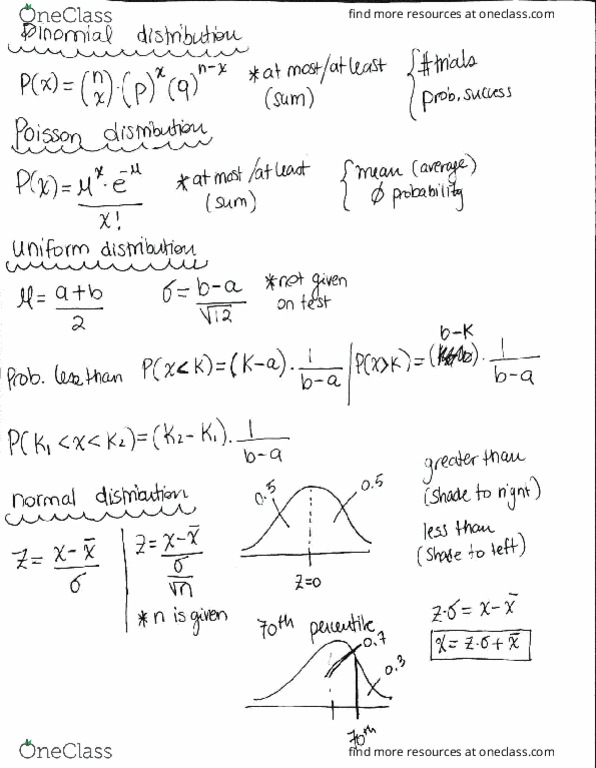 OneClass
find more resources at oneclass.com
Binomial distribution
P(x) = (n x) · (p)^x (q)^{n-x} *at most/at least (sum) { # trials
prob. success
Poisson distribution
P(x) = μ^x · e^{-μ} / x! *at most/at least (sum) { mean (average)
∅ probability
uniform distribution
μ = a+b / 2 σ = b-a / √12 *not given on test
Prob. less than P(x<K) = (K-a) · 1 / b-a | P(x>K) = (b-K) · 1 / b-a
P(K₁ < x < K₂) = (K₂ - K₁) · 1 / b-a
normal distribution
Z = x - x̄ / σ | Z = x - x̄ / σ/√n
*n is given
0.5 0.5
Z=0
greater than
(shade to right)
less than
(shade to left)
70th percentile
0.7
0.3
70th
Z·σ = x - x̄
x = Z·σ + x̄
OneClass
find more resources at oneclass.com